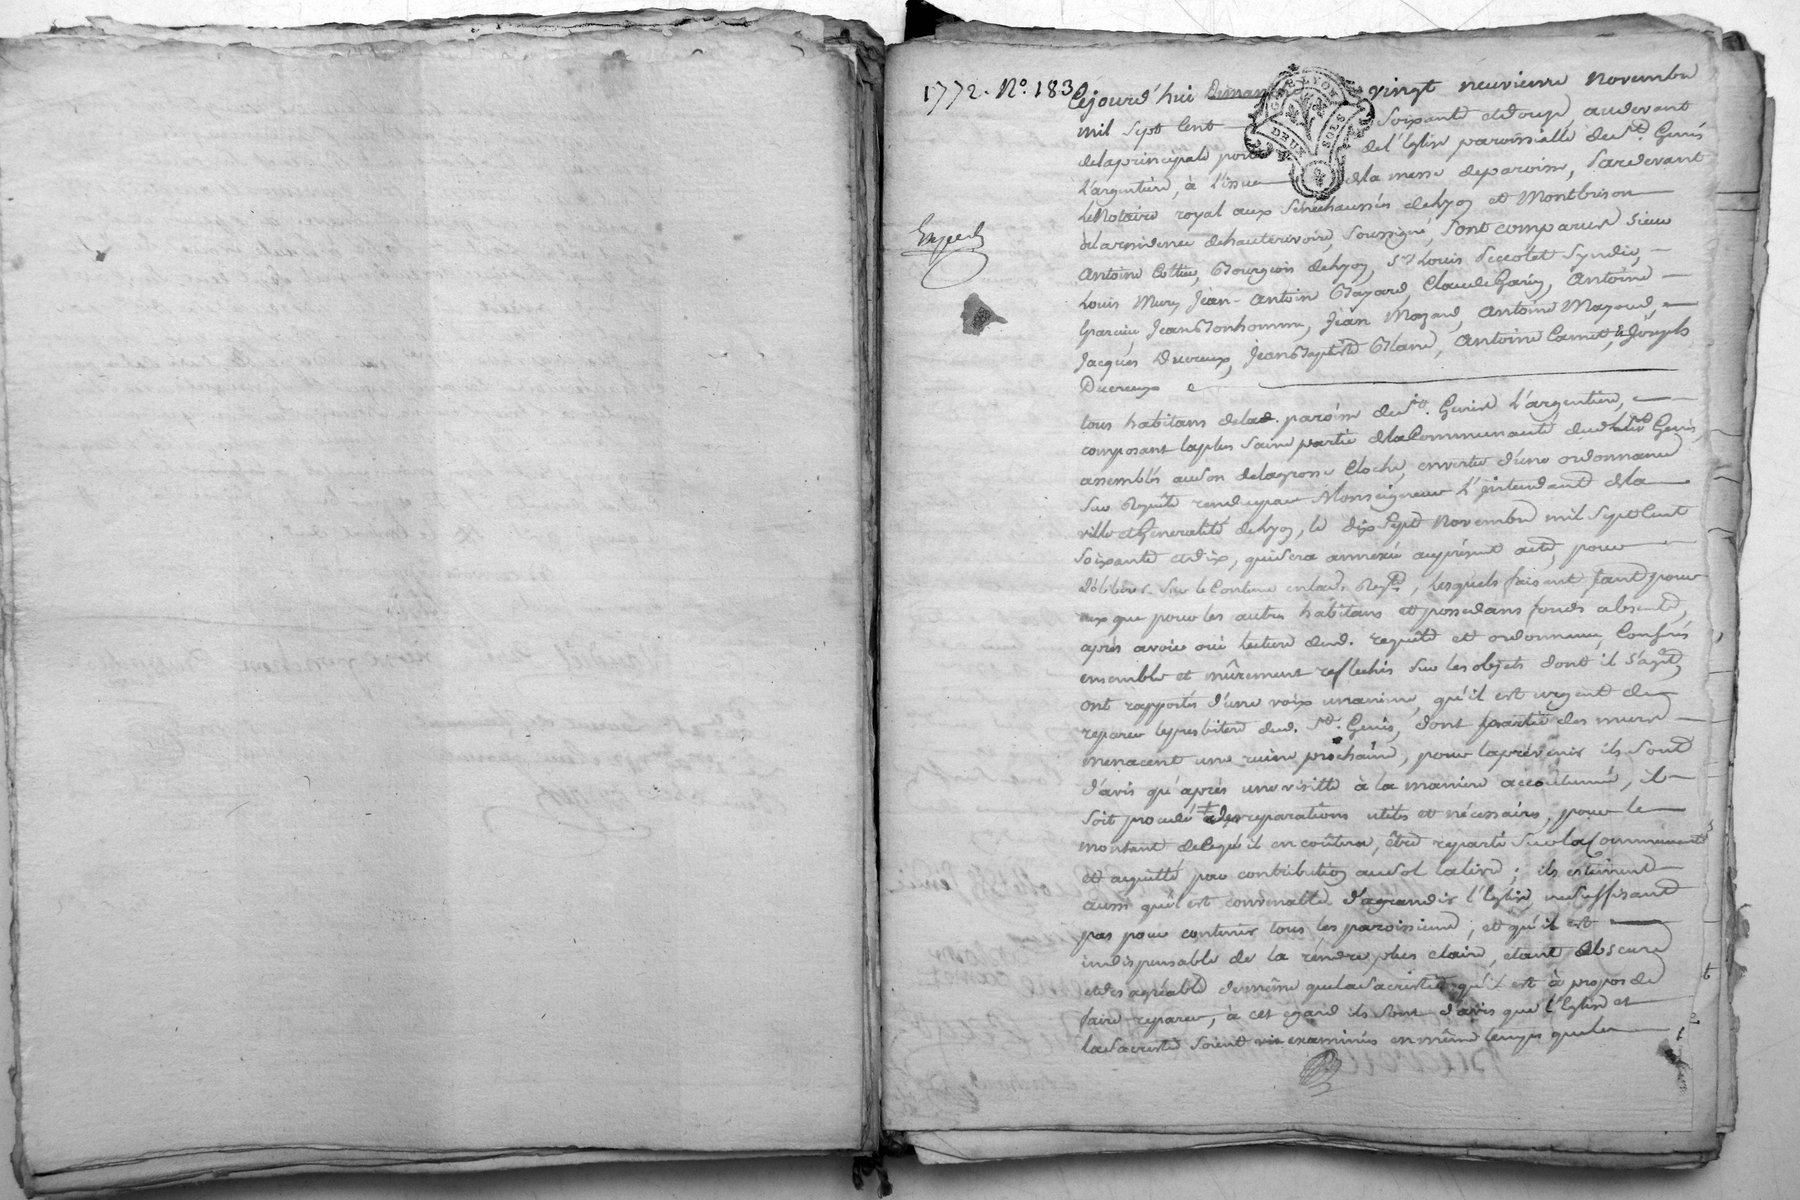 1772. N.º 183
Cejourd'hui Dimanche vingt neuvieme Novembre
mil sept Cent soixante et douze, audevant
delaprincipale porte de l'Eglise paroissialle de St. Genis
L'argentiere, à l'issue dela messe deparoisse, Pardevant
Le Notaire royal aux Senechaussées deLyon et Montbrison
àlaresidence dehauterivoire, soussigné, sont comparus sieur
Expedié
Antoine Bourgeois deLyon, Sr. Louis Syndic,
Louis Mury, Jean-Antoine Bayard, Claude Garin, Antoine
Garein, Jean Bonhomme, Jean Mazard, Antoine Mazard,
Jacques Ducreux, Jean Baptiste Blanc, Antoine Camet, & Joseph
Ducreux
tous habitans delad. paroisse de St. Genis L'argentiere,
composant laplus saine partie delaCommunauté dud. St. Genis,
assemblés auson delagrosse Cloche, envertu d'une ordonnance
sur Requête rendue par Monseigneur L'intendant dela
ville et Generalité deLyon, le dix sept Novembre mil sept Cent
soixante et dix, qui sera annexée auprésent acte, pour
déliberer sur le Contenu enlad. Reqte., Lesquels faisant tant pour
eux que pour les autres habitans et possedans fonds absents,
après avoir oui lecture dud. requête et ordonnance, Conferés
ensemble et mûrement reflechis sur les objets dont il s'agit,
ont rapportés d'une voix unanime, qu'il est urgent de
reparer lepresbitere dud. St. Genis, dont partie des murs
menacent une ruine prochaine, pour laprévenir ils sont
d'avis qu'après une visitte à la maniere accoutumée, il
soit procedé reparations utiles et nécessaires, pour le
montant deCequ'il en coûtera, être reparti surlaCommunauté
et acquitté par contribution ausol lalivre; ils estiment
aussi qu'il est convenable d'agrandir l'Eglise, nesuffisant
pas pour contenir tous les paroissiens, et qu'il est
indispensable de la rendre plus claire, étant obscure
et desagréable demême quelaSacristie qu'il est à propos de
faire reparer, à cet egard ils sont d'avis que l'Eglise et
laSacristie soient examinés en même temps quele